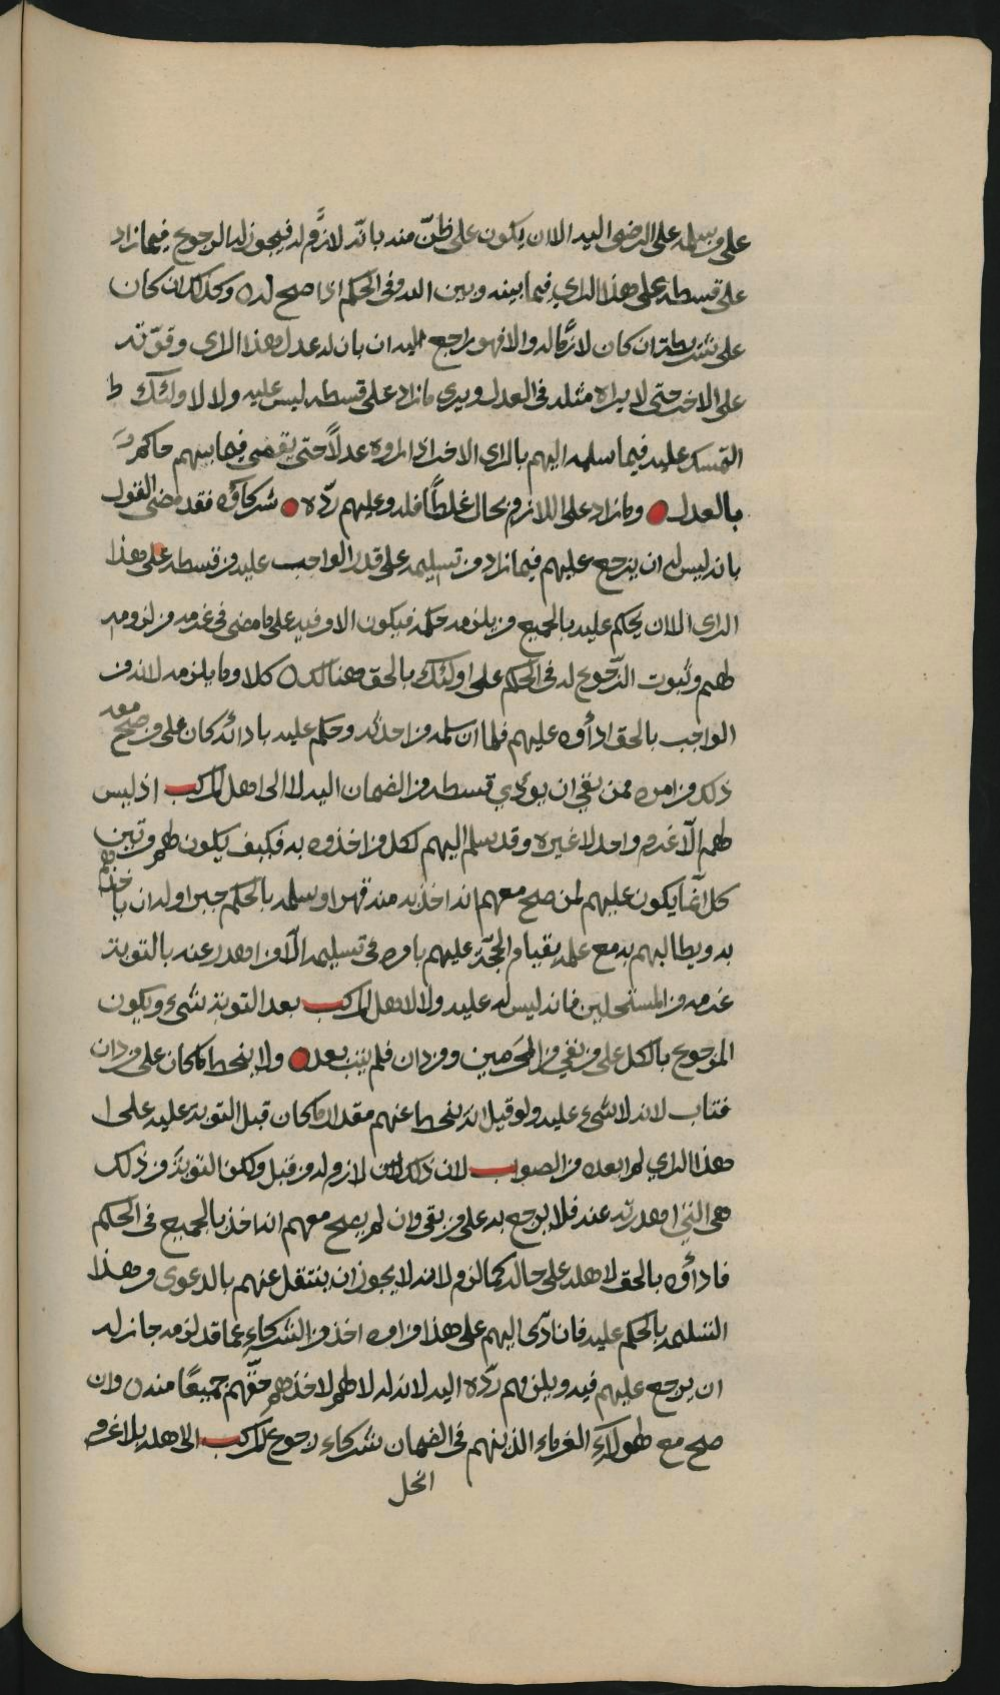 على وسلمه على الرضى اليه الا ان يكون على ظن منه بانه لازم له فيجوز له الرجوع فيما زاد
على قسطه على هذا الراي فيما بينه وبين الله وفي الحكم اذا صح له ٥ وكذلك ان كان
على شريطة ان كان لازما له والا فهو راجع اليه ان بان له عدل هذا الراى وقوته
على الاخر حتى لا يراه مثله في العدل ويرى ما زاد على قسطه ليس عليه ولا لاولئك
التمسك عليه فيما سلمه اليهم بالراى الاخر اذا راوه عدلاً حتى يقضى فيما بينهم حاكم
بالعدل وما زاد على اللازم بحال غلطاً فله وعليهم ردّه شركاؤه فقد مضى القول
بانه ليس له ان يرجع عليهم فيما زاد من تسليمه على قدر الواجب عليه من قسطه على هذا
الراى الا ان يحكم عليه بالجميع من يلزمه حكمه فيكون الامر فيه على ما مضى في غرمه من لزومه
لهم وثبوت الرّجوع له في الحكم على اولئك بالحق هنالك ٥ كلا وما يلزمه لانه من
الواجب بالحق اداؤه عليهم فلما ان سلمه من احد له وحكم عليه بادائه كان على من صح معه
ذلك من امره ممن بقي ان يودي قسطه من الضمان اليه لا الى اهل المركب اذ ليس
لهم الّا غرم واحد لا غيره وقد سلم اليهم لكل من اخذوه به فكيف يكون لهم مرتين
كل انما يكون عليهم لمن صح معهم انه اخذ به منه قهرا او سلمه بالحكم جبرا وله ان ياخذهم
به ويطالبهم به مع علمه بقيام الحجّة عليهم بامره في تسليمه الّا من اهدر عنه بالتوبة
غرمه من المستحلين فانه ليس له عليه ولا لاهل المركب بعد التوبة شيء ويكون
المرجوع بالكل على من بقي من المحرمين ومن دان فلم يتب بعد ولا ينحط ما كان على من دان
فتاب لانه لا شيء عليه ولو قيل انه ينحط عنهم مقدار ما كان قبل التوبة عليه على
هذا الراي لم ابعده من الصواب لان ذلك كان لازم له من قبل ولكن التوبة من ذلك
هي التي اهدرته عنه فلا يرجع به على من بقي وان لم يصح معهم انه اخذ بالجميع في الحكم
فاداؤه بالحق لاهله على حاله كما لزم ولانه لا يجوز ان ينتقل عنهم بالدعوى وهذا
التسليم بالحكم عليه فان ادّى اليهم على هذا من امره اخذ من الشركاء عما قد لزمه جاز له
ان يرجع عليهم فيه ويلزمهم ردّه اليه لانه له لا لهم لاخذهم حقّهم جميعًا منه ٥ وان
صح مع هولاء الغرماء الذينهم في الضمان شركاء رجوع المركب الى اهله بلا غرم
انحل